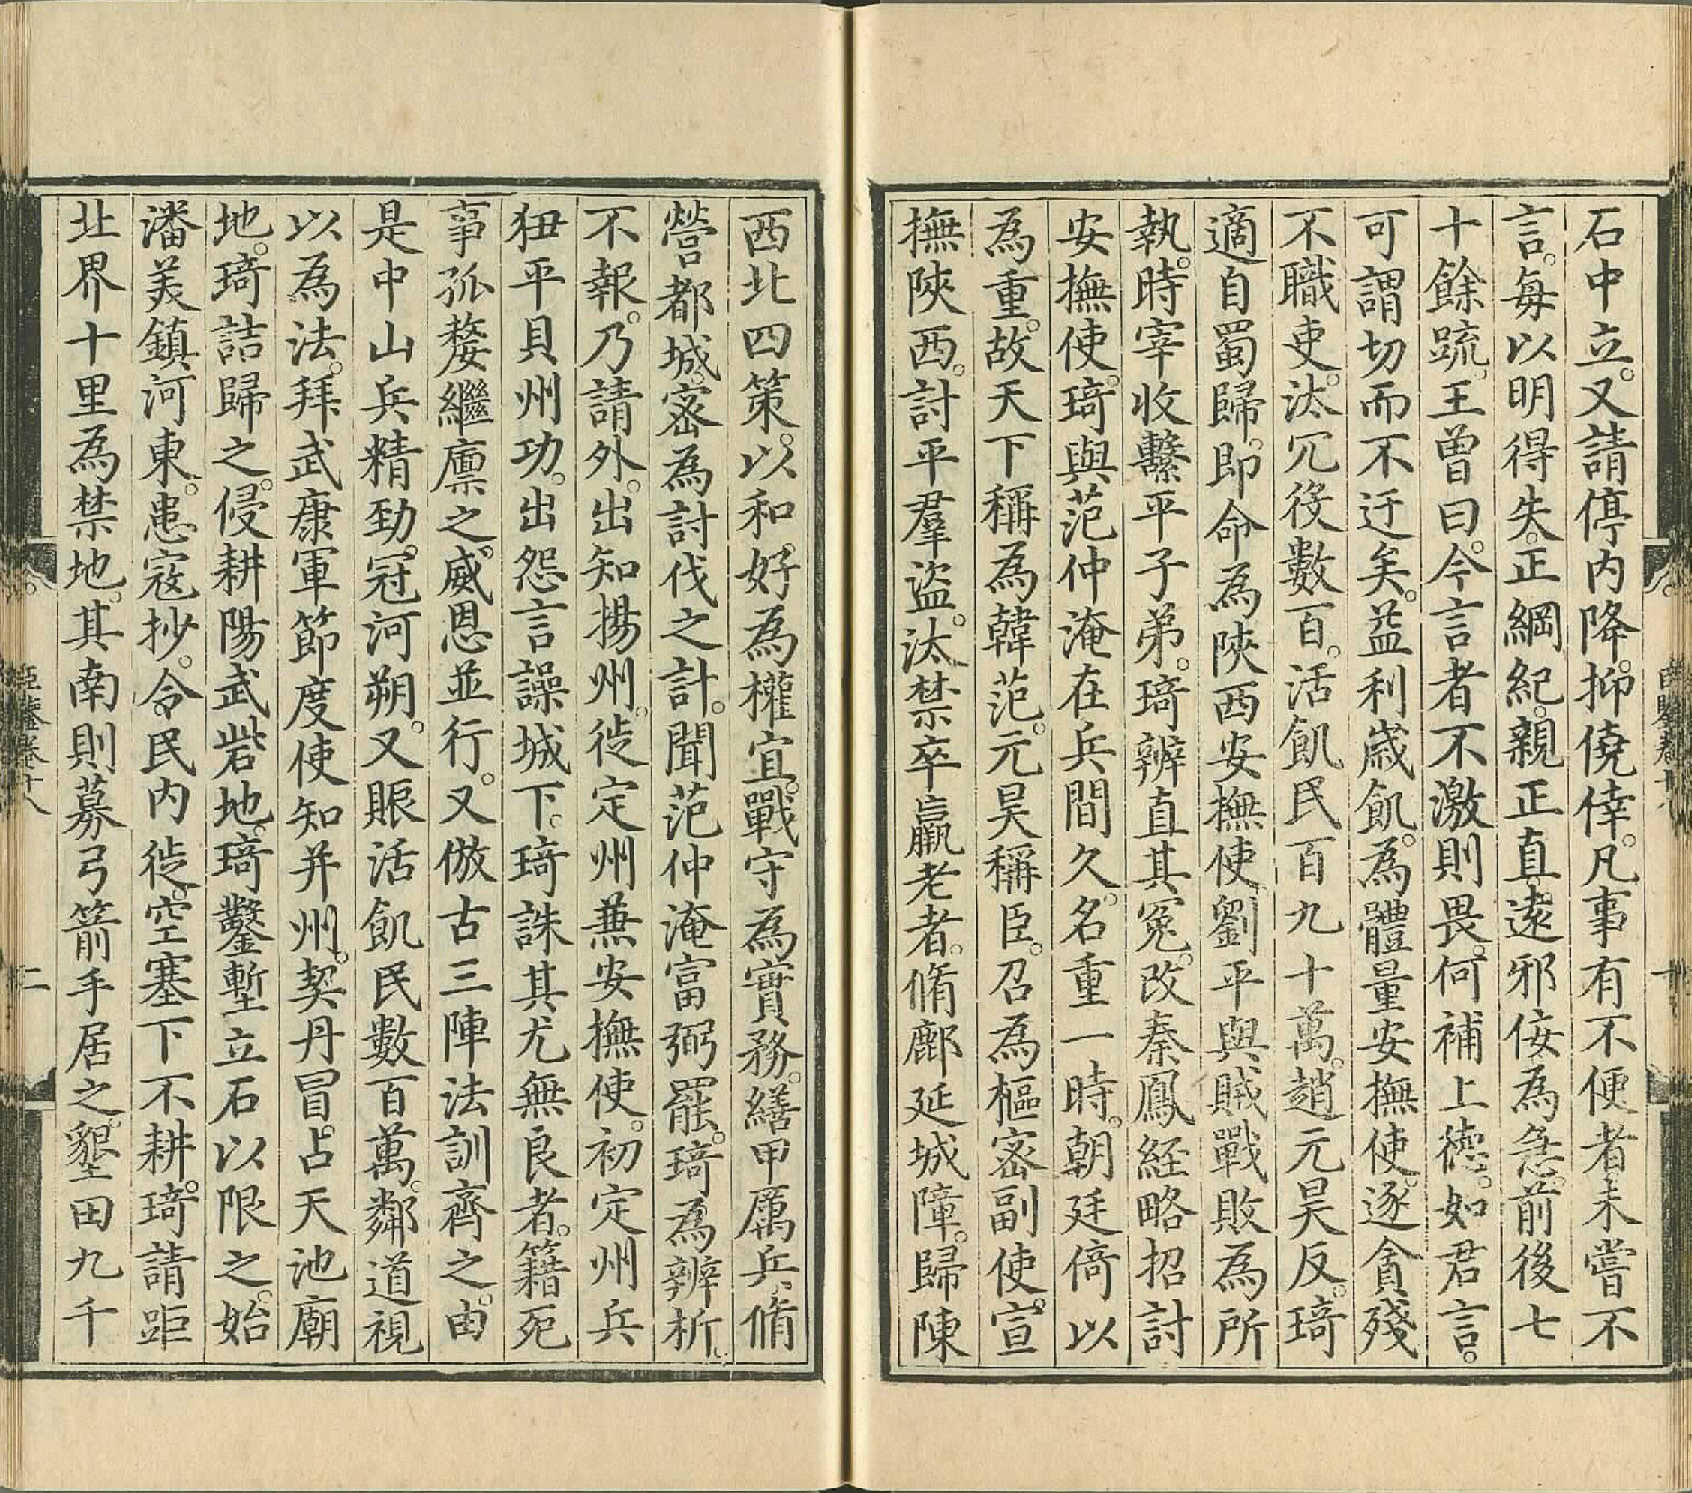 石中立。又請停内降。抑僥倖。凡事有不便者未嘗不
言。每以明得失。正綱紀。親正直。遠邪佞為急。前後七
十餘䟽。王曾曰。今言者不激則畏。何補上徳。如君言。
可謂切而不迂矣。益利歲飢。為體量安撫使。逐貪殘
不職吏。汰冗役數百。活飢民百九十萬。趙元昊反。琦
適自蜀歸。即命為陜西安撫使。劉平與賊戰敗為所
執。時宰收繫平子弟。琦辨直其冤。改秦鳳経略招討
安撫使。琦與范仲淹在兵間久。名重一時。朝廷倚以
為重。故天下稱為韓范。元昊稱臣。召為樞宻副使。宣
撫陜西。討平羣盜。汰禁卒羸老者。脩鄜延城障。歸陳
西北四策。以和好為權宜。戰守為實務。繕甲厲兵。脩
營都城。宻為討伐之計。聞范仲淹富弼罷。琦為辨析。
不報。乃請外。出知揚州。徙定州兼安撫使。初定州兵
狃平貝州功。出怨言譟城下。琦誅其尤無良者。籍死
事孤嫠繼廩之。威恩並行。又倣古三陣法訓齊之。由
是中山兵精勁。冠河朔。又賑活飢民數百萬。鄰道視
以為法。拜武康軍節度使知并州。契丹冒占天池廟
地。琦詰歸之。侵耕陽武砦地。琦鑿塹立石以限之。始
潘美鎮河東。患寇抄。令民内徙。空塞下不耕。琦請距
北界十里為禁地。其南則募弓箭手居之。墾田九千
臣鑒卷十八
二